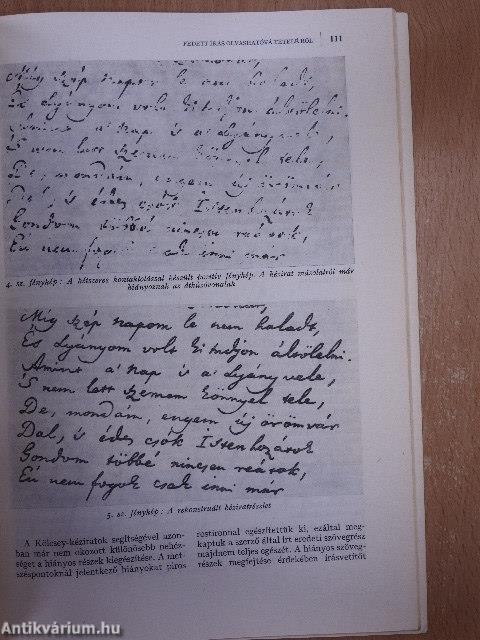 FEDETT ÍRÁS OLVASHATÓVÁ TÉTELÉRŐL | 111
szép napom le nem haladt,
lyányom volt ki tudjon ölelni.
a' nap is a' lyány vele,
S nem lett szemem könnyel tele,
De, mondám, engem új öröm
Dal, is édes csók Istenhozások
Gondom többé nincsen reátok,
Én nem fogok csak inni már
4. sz. fénykép: A kétszeres kontaktolással készült pozitív fénykép. A kézirat másolatról már
hiányoznak az áthúzóvonalak
Míg szép napom le nem haladt,
És Lyányom volt ki tudjon ölelni.
Amint a' nap is a' Lyány vele,
S nem lett szemem könnyel tele,
De, mondám, engem új öröm vár
Dal, is édes csók Istenhozások
Gondom többé nincsen reátok,
Én nem fogok csak inni már
5. sz. fénykép: A rekonstruált kéziratrészlet
A Kölcsey-kéziratok segítségével azon-
ban már nem okozott különösebb nehéz-
séget a hiányos részek kiegészítése. A met-
széspontoknál jelentkező hiányokat piros
rostironnal egészítettük ki, ezáltal meg-
kaptuk a szerző által írt eredeti szövegrész
majdnem teljes egészét. A hiányos szöveg-
részek megfejtése érdekében írásvetítőt
Antikvárium.hu